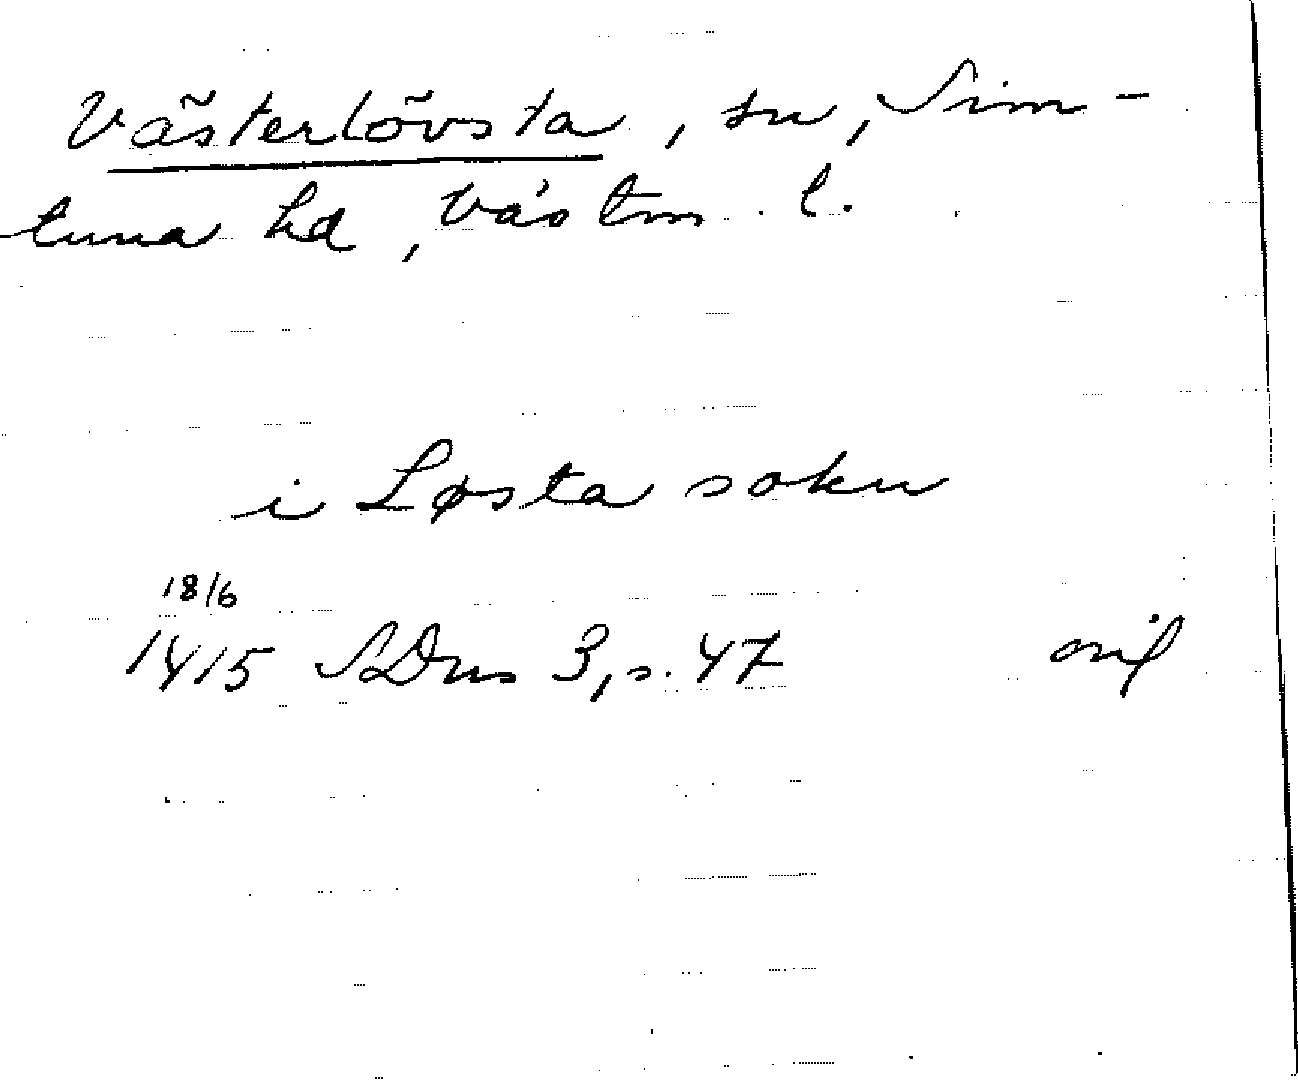 Västerlövsta, sn, Sim-
tuna hd, Västm. l.
i Løsta sokn
18/6
1415 SDns 3, s. 47 orig